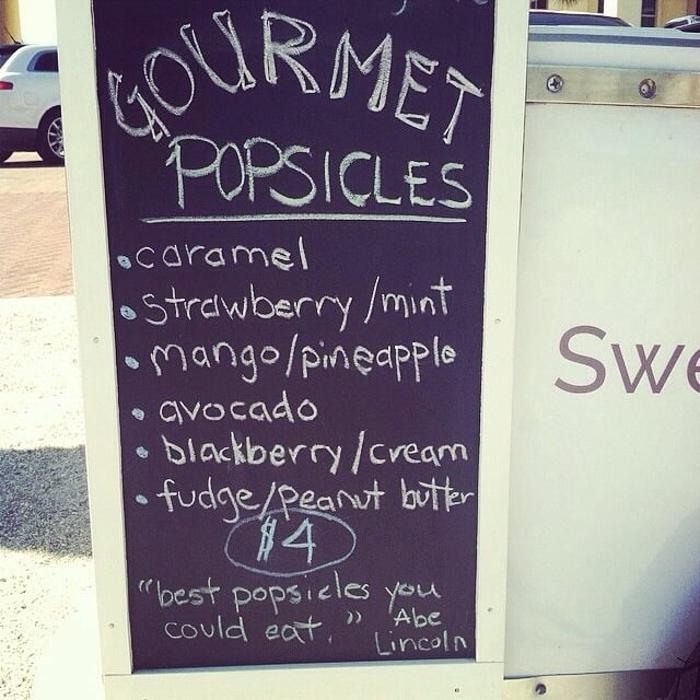 GOURMET
POPSICLES
• caramel
• strawberry/mint
• mango/pineapple
• avocado
• blackberry/cream
• fudge/peanut butter
$4
"best popsicles you
could eat." Abe
Lincoln
Swe